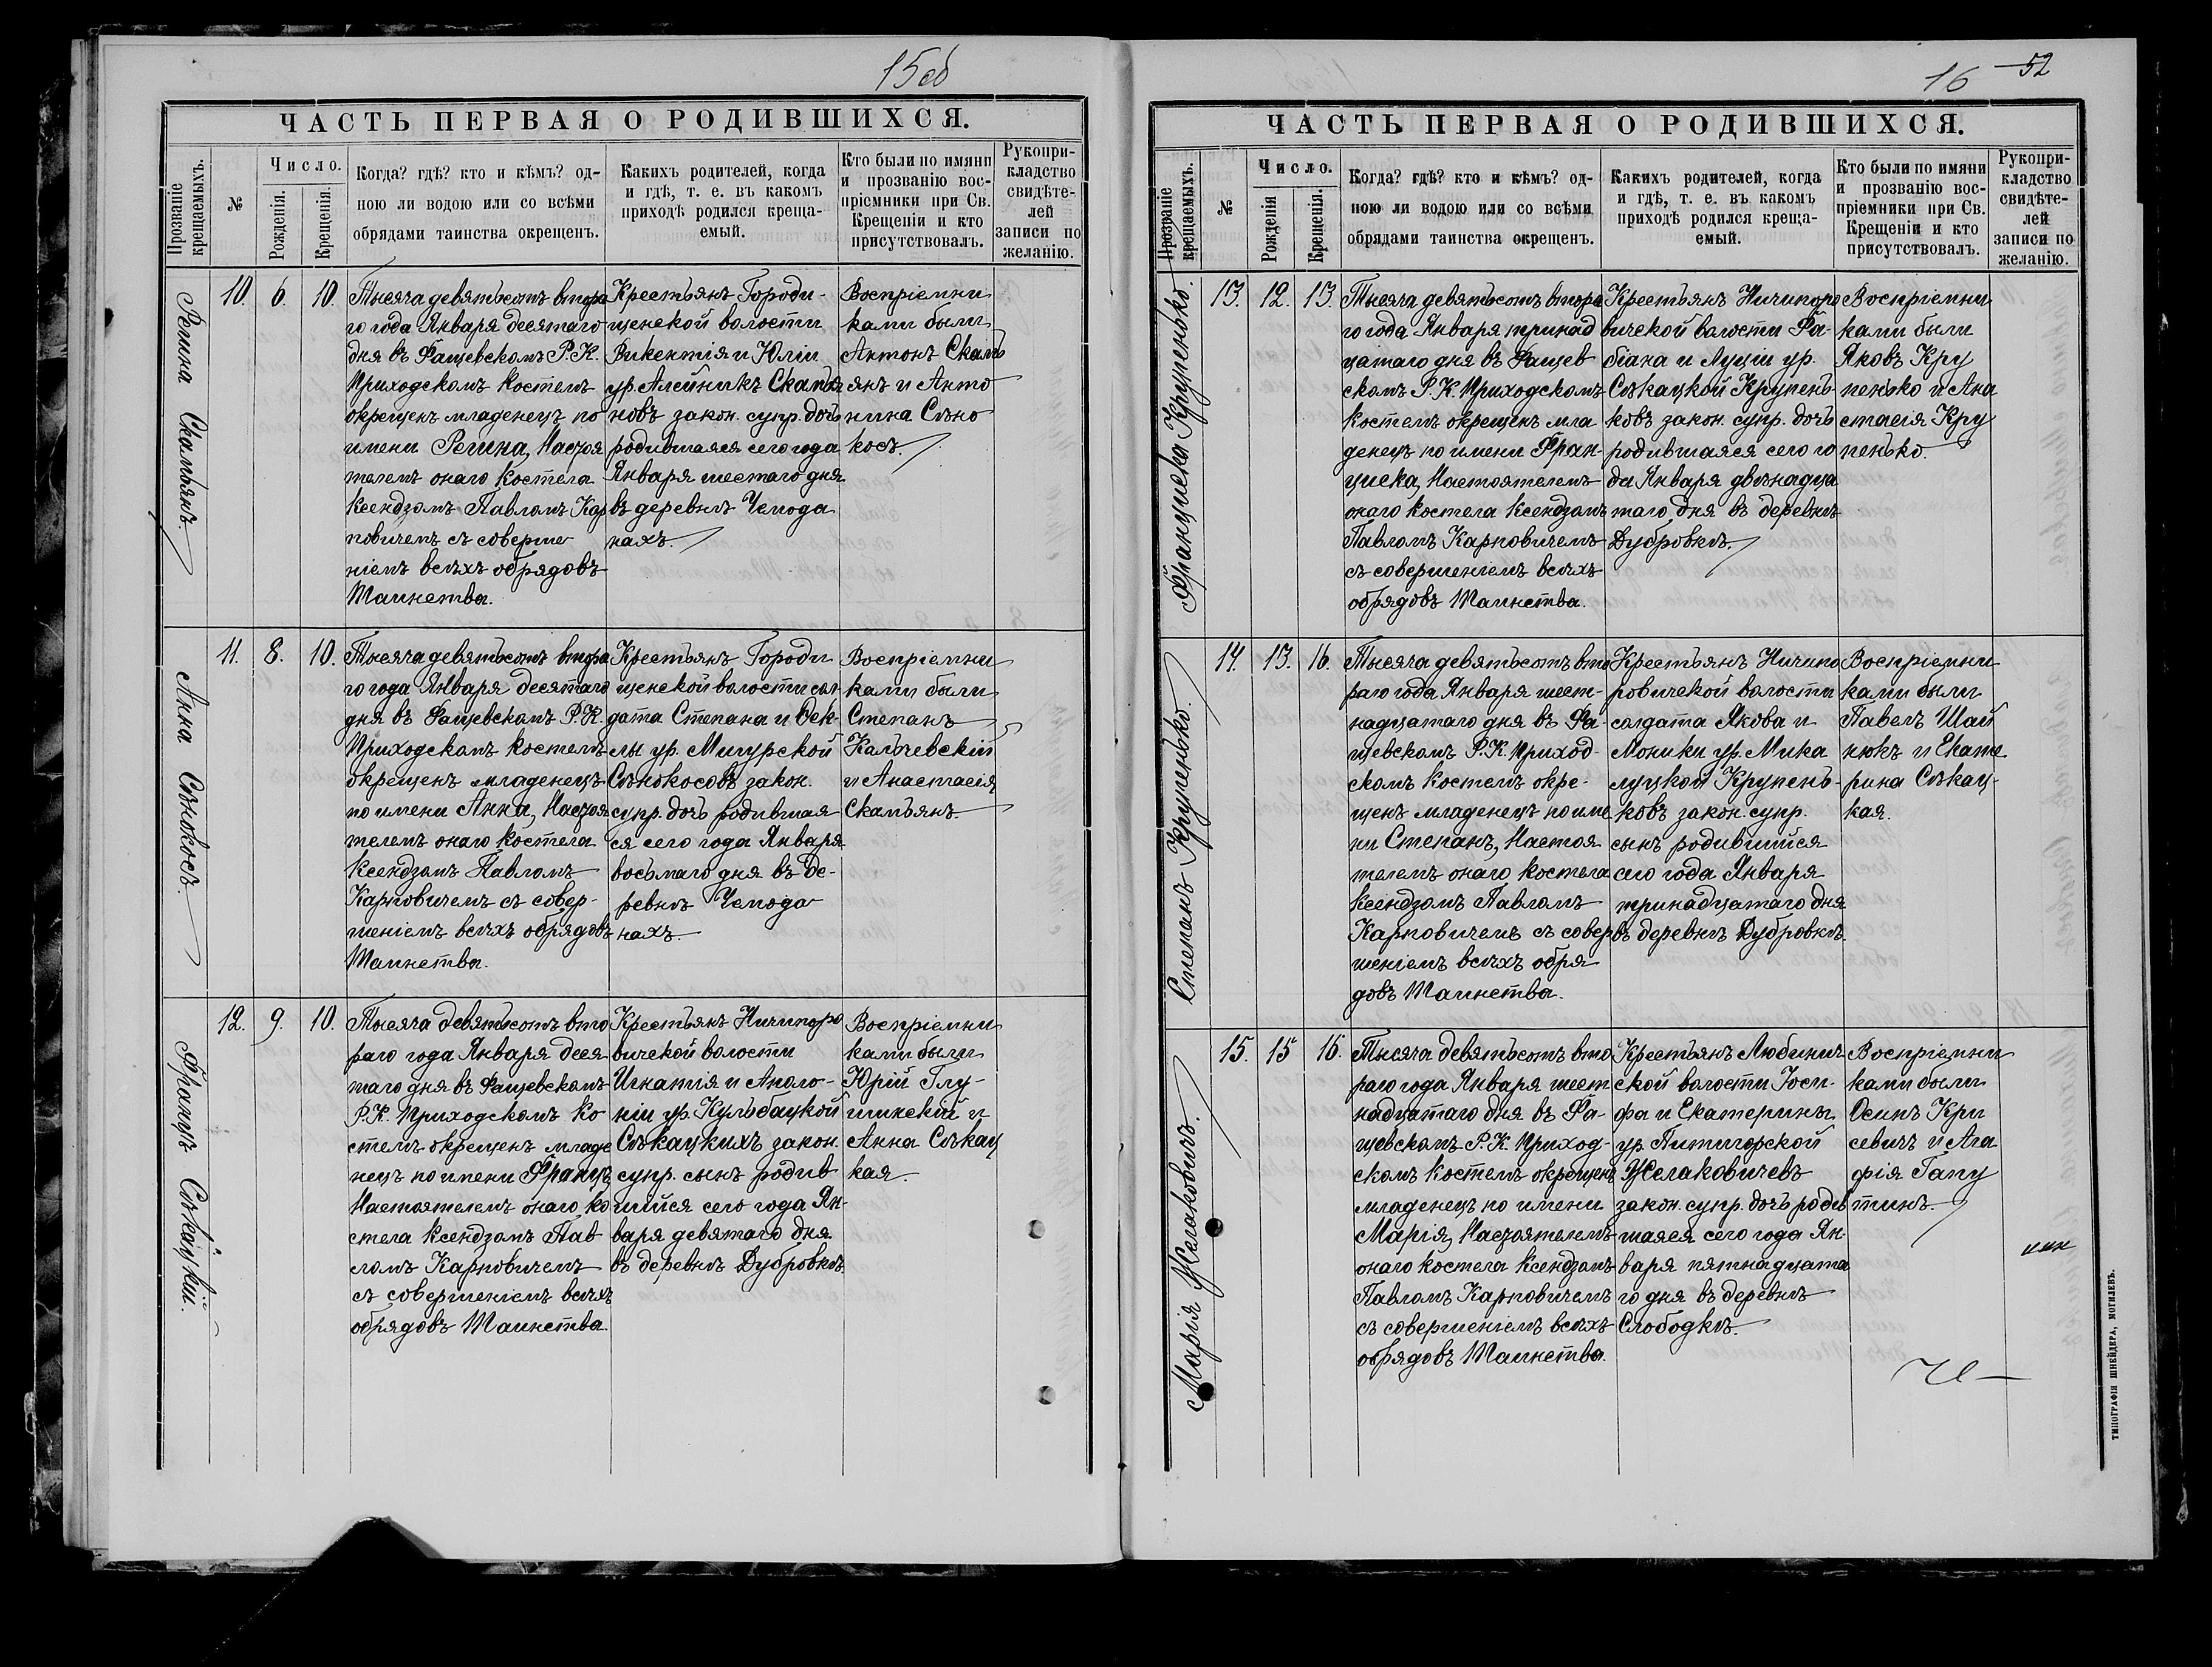 15об
ЧАСТЬ ПЕРВАЯ О РОДИВШИХСЯ.
Прозваніе крещаемыхъ.
№
Число.
Рожденія.
Крещенія.
Когда? гдѣ? кто и кѣмъ? од-
ною ли водою или со всѣми
обрядами таинства окрещенъ.
Какихъ родителей, когда
и гдѣ, т. е. въ какомъ
приходѣ родился креща-
емый.
Кто были по имяни
и прозванію вос-
пріемники при Св.
Крещеніи и кто
присутствовалъ.
Рукопри-
кладство
свидѣте-
лей
записи по
желанію.
Регина Скамьянъ.
10.
6.
10.
Тысяча девятьсотъ второ
го года Января десятаго
дня въ Фащевскомъ Р. К.
Приходскомъ костелѣ
окрещенъ младенецъ по
имени Регина, Настоя
телемъ онаго костела
Ксендзомъ Павломъ Кар
повичемъ съ соверше
ніемъ всѣхъ обрядовъ
Таинства.
Крестьянъ Городи-
щенской волости
Викентія и Юліи
ур. Алейникъ Скамья
новъ закон. супр. дочь
родившаяся сего года
Января шестаго дня
въ деревнѣ Чемода
нахъ.
Воспріемни
ками были
Антонъ Скамь
янъ и Анто
нина Сѣно
косъ.
Анна Сѣнокосъ.
11.
8.
10.
Тысяча девятьсотъ второ
го года Января десятаго
дня въ Фащевскомъ Р. К.
Приходскомъ костелѣ
окрещенъ младенецъ
по имени Анна, Настоя
телемъ онаго костела
Ксендзомъ Павломъ
Карповичемъ съ совер-
шеніемъ всѣхъ обрядовъ
Таинства.
Крестьянъ Городи
щенской волости сол-
дата Степана и Фек-
лы ур. Мигурской
Сѣнокосовъ закон.
супр. дочь родившая
ся сего года Января
восьмаго дня въ де-
ревнѣ Чемода
нахъ.
Воспріемни
ками были
Степанъ
Кальчевскій
и Анастасія
Скамьянъ.
Францъ Сѣкацкій.
12.
9.
10.
Тысяча девятьсотъ вто
раго года Января деся
таго дня въ Фащевскомъ
Р. К. Приходскомъ ко
стелѣ окрещенъ младе
нецъ по имени Францъ,
Настоятелемъ онаго ко
стела Ксендзомъ Пав
ломъ Карповичемъ
съ совершеніемъ всѣхъ
обрядовъ Таинства.
Крестьянъ Ничипоро
вичской волости
Игнатія и Аполо-
ніи ур. Кульбацкой
Сѣкацкихъ закон.
супр. сынъ родив
шійся сего года Ян-
варя девятаго дня
въ деревнѣ Дубровкѣ.
Воспріемни
ками были
Юрій Глу-
шинскій и
Анна Сѣкац
кая.
16
52
ЧАСТЬ ПЕРВАЯ О РОДИВШИХСЯ.
Прозваніе крещаемыхъ.
№
Число.
Рожденія
Крещенія.
Когда? гдѣ? кто и кѣмъ? од-
ною ли водою или со всѣми
обрядами таинства окрещенъ.
Какихъ родителей, когда
и гдѣ, т. е. въ какомъ
приходѣ родился креща-
емый.
Кто были по имяни
и прозванію вос-
пріемники при Св.
Крещеніи и кто
присутствовалъ.
Рукопри-
кладство
свидѣте-
лей
записи по
желанію.
Франциска Крупенько.
13.
12.
13.
Тысяча девятьсотъ второ
го года Января тринад
цатаго дня въ Фащев
скомъ Р. К. Приходскомъ
костелѣ окрещенъ мла
денецъ по имени Фран-
циска, Настоятелемъ
онаго костела Ксендзомъ
Павломъ Карповичемъ
съ совершеніемъ всѣхъ
обрядовъ Таинства.
Крестьянъ Ничипоро
вичской волости Фа-
біана и Луціи ур.
Сѣкацкой Крупень-
ковъ закон. супр. дочь
родившаяся сего го
да Января двѣнадца
таго дня въ деревнѣ
Дубровкѣ.
Воспріемни
ками были
Яковъ Кру
пенько и Ана
стасія Кру
пенько.
Степанъ Крупенько.
14.
13.
16.
Тысяча девятьсотъ вто
раго года Января шест-
надцатаго дня въ Фа-
щевскомъ Р. К. Приход-
скомъ костелѣ окре-
щенъ младенецъ по име
ни Степанъ, Настоя
телемъ онаго костела
Ксендзомъ Павломъ
Карповичемъ съ совер
шеніемъ всѣхъ обря
довъ Таинства.
Крестьянъ Ничипо
ровичской волости
солдата Якова и
Моники ур. Мика
луцкой Крупень-
ковъ закон. супр.
сынъ родившійся
сего года Января
тринадцатаго дня
въ деревнѣ Дубровкѣ.
Воспріемни
ками были
Павелъ Шай
нюкъ и Екате
рина Сѣкац-
кая.
Марія Желаковичъ.
15.
15
16.
Тысяча девятьсотъ вто
раго года Января шест
надцатаго дня въ Фа-
щевскомъ Р. К. Приход-
скомъ костелѣ окрещенъ
младенецъ по имени
Марія, Настоятелемъ
онаго костела Ксендзомъ
Павломъ Карповичемъ
съ совершеніемъ всѣхъ
обрядовъ Таинства.
Крестьянъ Любинич
ской волости Іоси-
фа и Екатерины
ур. Питигорской
Желаковичевъ
закон. супр. дочь родив
шаяся сего года Ян-
варя пятнадцата
го дня въ деревнѣ
Слободкѣ.
Воспріемни
ками были
Осипъ Кри
севичъ и Ага
фія Гапу
тинъ.
ТИПОГРАФІЯ ШНЕЙДЕРА, МОГИЛЕВЪ.